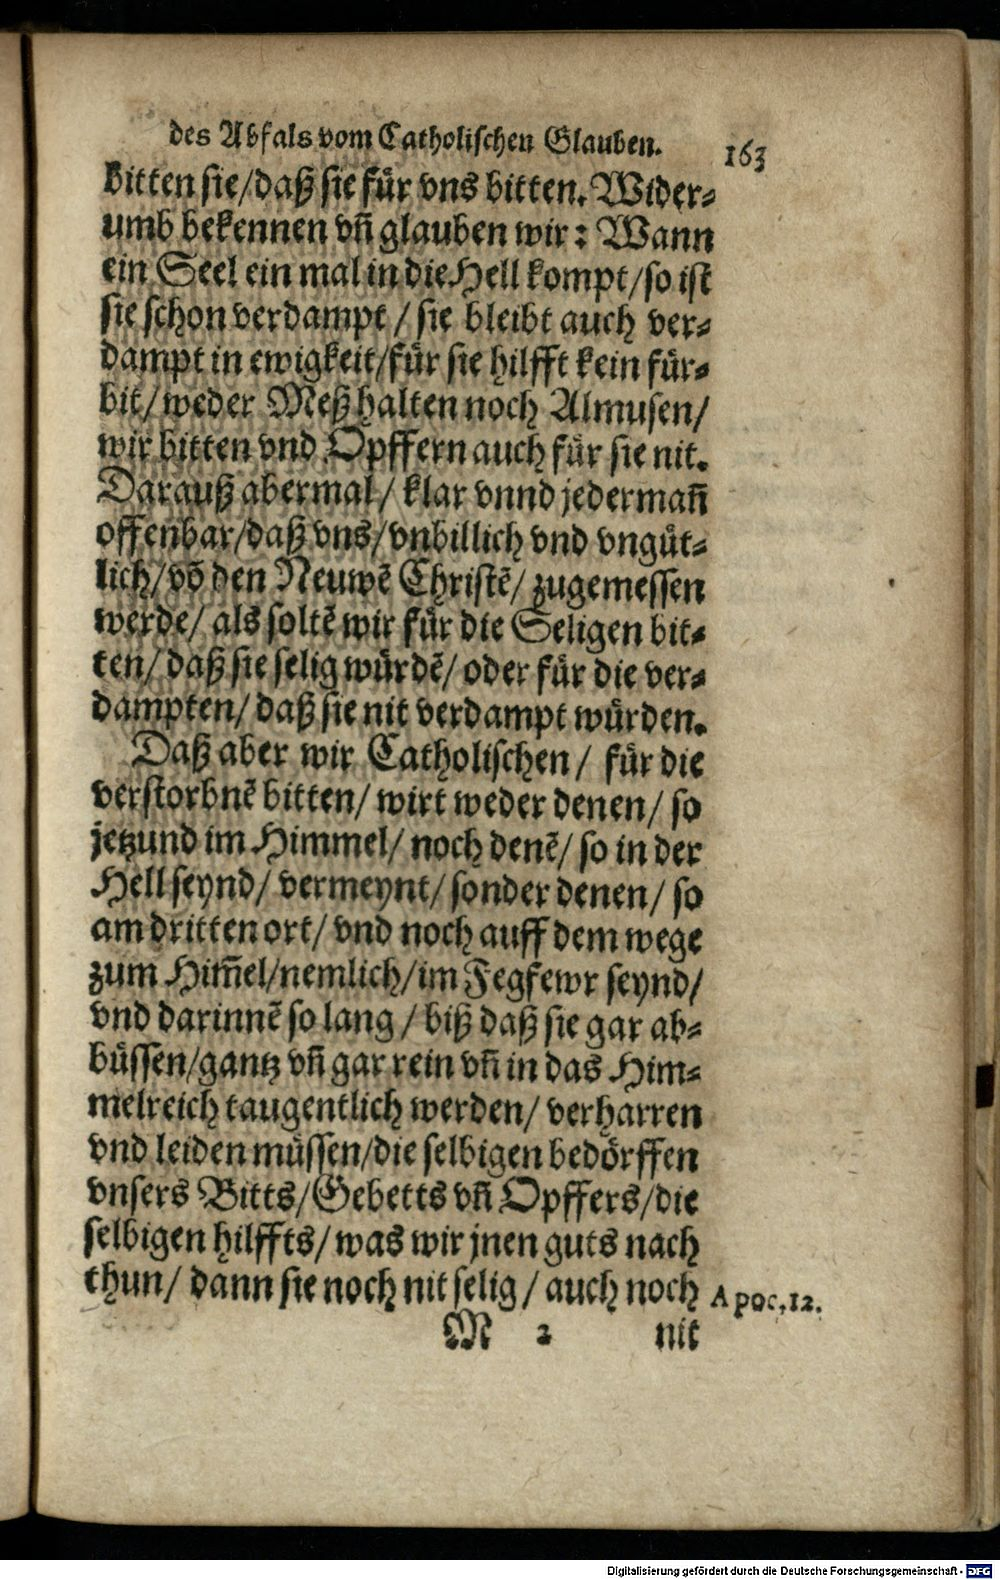 des Abfals vom Catholischen Glauben. 163
bitten sie/daß sie für vns bitten. Wider-
umb bekennen vñ glauben wir: Wann
ein Seel ein mal in die Hell kompt/so ist
sie schon verdampt / sie bleibt auch ver-
dampt in ewigkeit/für sie hilfft kein für-
bit/ weder Meß halten noch Almusen/
wir bitten vnd Opffern auch für sie nit.
Darauß abermal/ klar vnnd jedermañ
offenbar/daß vns/ vnbillich vnd vngüt-
lich/ võ den Neuwẽ Christẽ/ zugemessen
werde/ als soltẽ wir für die Seligen bit-
ten/ daß sie selig würdẽ/ oder für die ver-
dampten/ daß sie nit verdampt würden.
Daß aber wir Catholischen/ für die
verstorbnẽ bitten/ wirt weder denen/ so
jetzund im Himmel/ noch denẽ/ so in der
Hell seynd/ vermeynt/ sonder denen/ so
am dritten ort/ vnd noch auff dem wege
zum Him̃el/nemlich/im Fegfewr seynd/
vnd darinnẽ so lang / biß daß sie gar ab-
büssen/gantz vñ gar rein vñ in das Him-
melreich taugentlich werden/ verharren
vnd leiden müssen/die selbigen bedörffen
vnsers Bitts/Gebetts vñ Opffers/die
selbigen hilffts/ was wir jnen guts nach
thun/ dann sie noch nit selig / auch noch Apoc.12.
M 2 nit
Digitalisierung gefördert durch die Deutsche Forschungsgemeinschaft - DFG